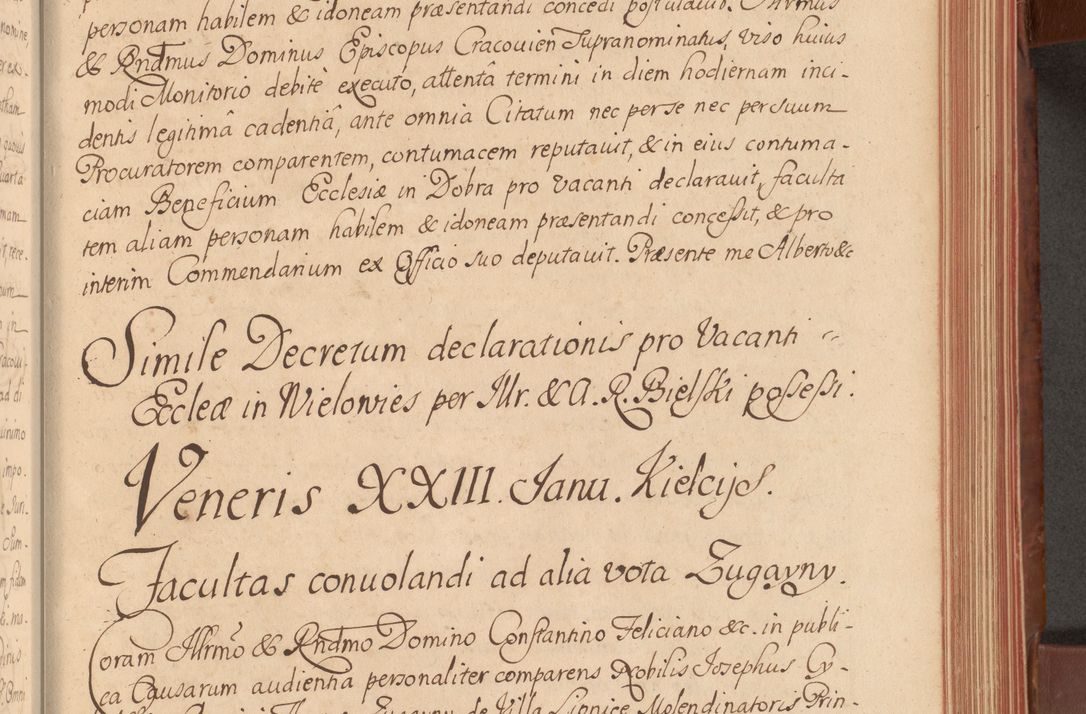 personam habilem & idoneam præsentandi concedi postulavit. Illrmus
& Rndmus Dominus Episcopus Cracovien Supranominatus, viso huius
modi Monitorio debite executo, attentâ termini in diem hodiernam inci-
dentis legitimâ cadentiâ, ante omnia Citatum nec per se nec per suum
Procuratorem comparentem, contumacem reputavit, & in eius contuma-
ciam Beneficium Ecclesiæ in Dobra pro vacanti declaravit, faculta
tem aliam personam habilem & idoneam præsentandi concessit, & pro
interim Commendarium ex Officio suo deputavit. Præsente me Alberto &c
Simile Decretum declarationis pro Vacanti
Eccleæ in Wielowies per Illr. & A. R. Bielski possessi.
Veneris XXIII. Janu. Kielcijs.
Facultas convolandi ad alia vota Zugayny.
Coram Illrmo & Rndmo Domino Constantino Feliciano &c. in publi-
ca Causarum audientia personaliter comparens Nobilis Josephus Cy-
Zugayny de Villa Lipnice Molendinatoris Prin-